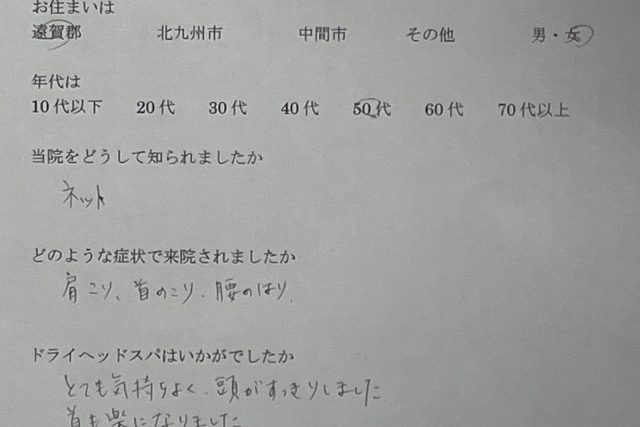 お住まいは
遠賀郡 北九州市 中間市 その他 男・女
年代は
10代以下 20代 30代 40代 50代 60代 70代以上
当院をどうして知られましたか
ネット
どのような症状で来院されましたか
肩こり、首のこり、腰のはり、
ドライヘッドスパはいかがでしたか
とても気持ちよく、頭がすっきりしました
首も楽になりました